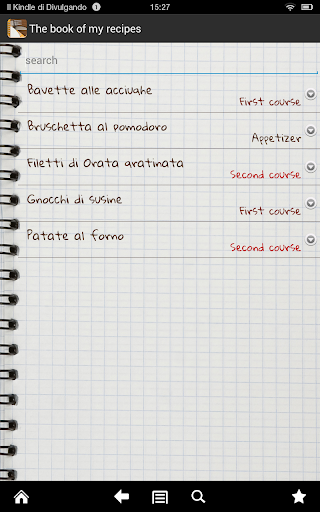 Il Kindle di Divulgando 1 15:27
The book of my recipes
search
Bavette alle acciughe
First course
Bruschetta al pomodoro
Appetizer
Filetti di Orata gratinata
Second course
Gnocchi di susine
First course
Patate al forno
Second course